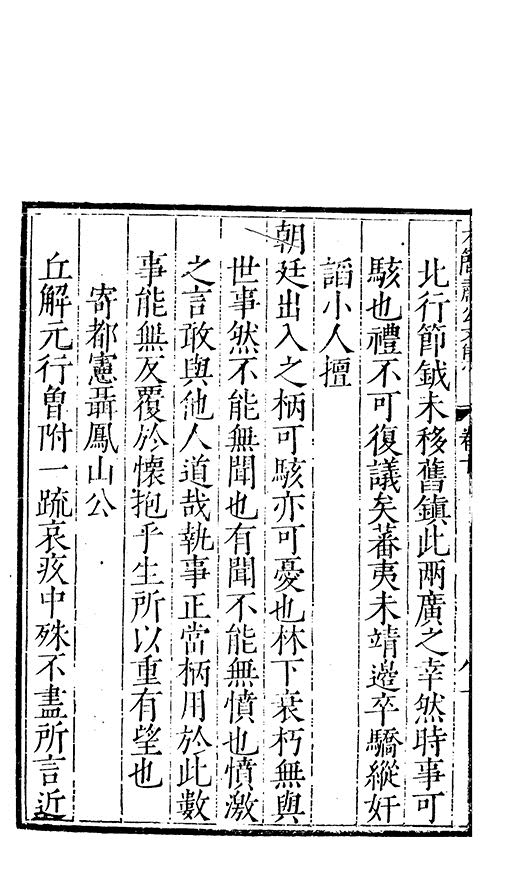 此行節鉞未移舊鎮此兩廣之幸然時事可
駭也禮不可復議矣蕃夷未靖邊卒驕縱奸
謟小人擅
朝廷出入之柄可駭亦可憂也林下衰朽無與
世事然不能無聞也有聞不能無憤也憤激
之言敢與他人道哉執事正當柄用於此數
事能無反覆於懷抱乎生所以重有望也
寄都憲聶鳳山公
丘解元行曾附一䟽哀疚中殊不盡所言近